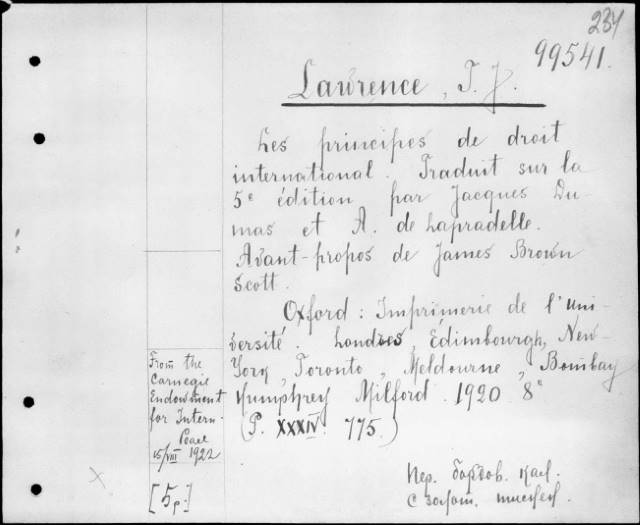 234
99541.
Lawrence, T. J.
Les principes de droit
international. Traduit sur la
5e édition par Jacques Du-
mas et A. de Lapradelle.
Avant-propos de James Brown
Scott.
Oxford: Imprimerie de l'Uni-
versité. Londres, Édimbourgh, New-
York, Toronto, Meldourne, Bombay
Humphrey Milford. 1920 8°
(P. XXXIV. 775.)
From the
Carnegie
Endowment
for Intern.
Peace
15/VIII 1922
[5р.]
Пер. бордов. кал.
с золот. тиснен.